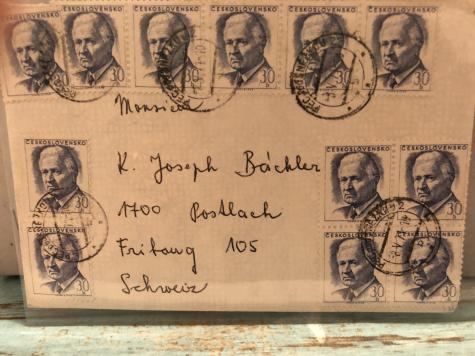 ČESKOSLOVENSKO ČESKOSLOVENSKO ČESKOSLOVENSKO ČESKOSLOVENSKO ČESKOSLOVENSKO
30 30 30 30 30 30
Monsieur
K. Joseph Bächler
1700 Postlach
Fribourg 105
Schweiz
ČESKOSLOVENSKO
30
30
ČESKOSLOVENSKO ČESKOSLOVENSKO
30 30
30 30